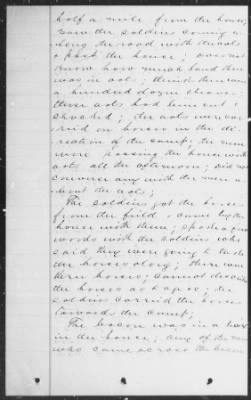 half a mile from the house;
saw the soldiers coming a-
long the road with the oats
& past the house; does not
know how much land there
was in oats; think there was
a hundred dozen sheaves
these oats had been cut &
shocked; the oats were car-
ried on horses in the di-
rection of the camp; the men
were passing the house with
oats all the afternoon; did not
converse any with the men a-
bout the oats;
The soldiers got the horses
from the field & came by the
house with them; spoke a few
words with the soldiers who
said they were going to take
the horses along; there were
three horses; cannot describe
the horses as to age; the
soldiers carried the horses
towards the camp;
The bacon was in a box
in the house; any of the men
who came across the